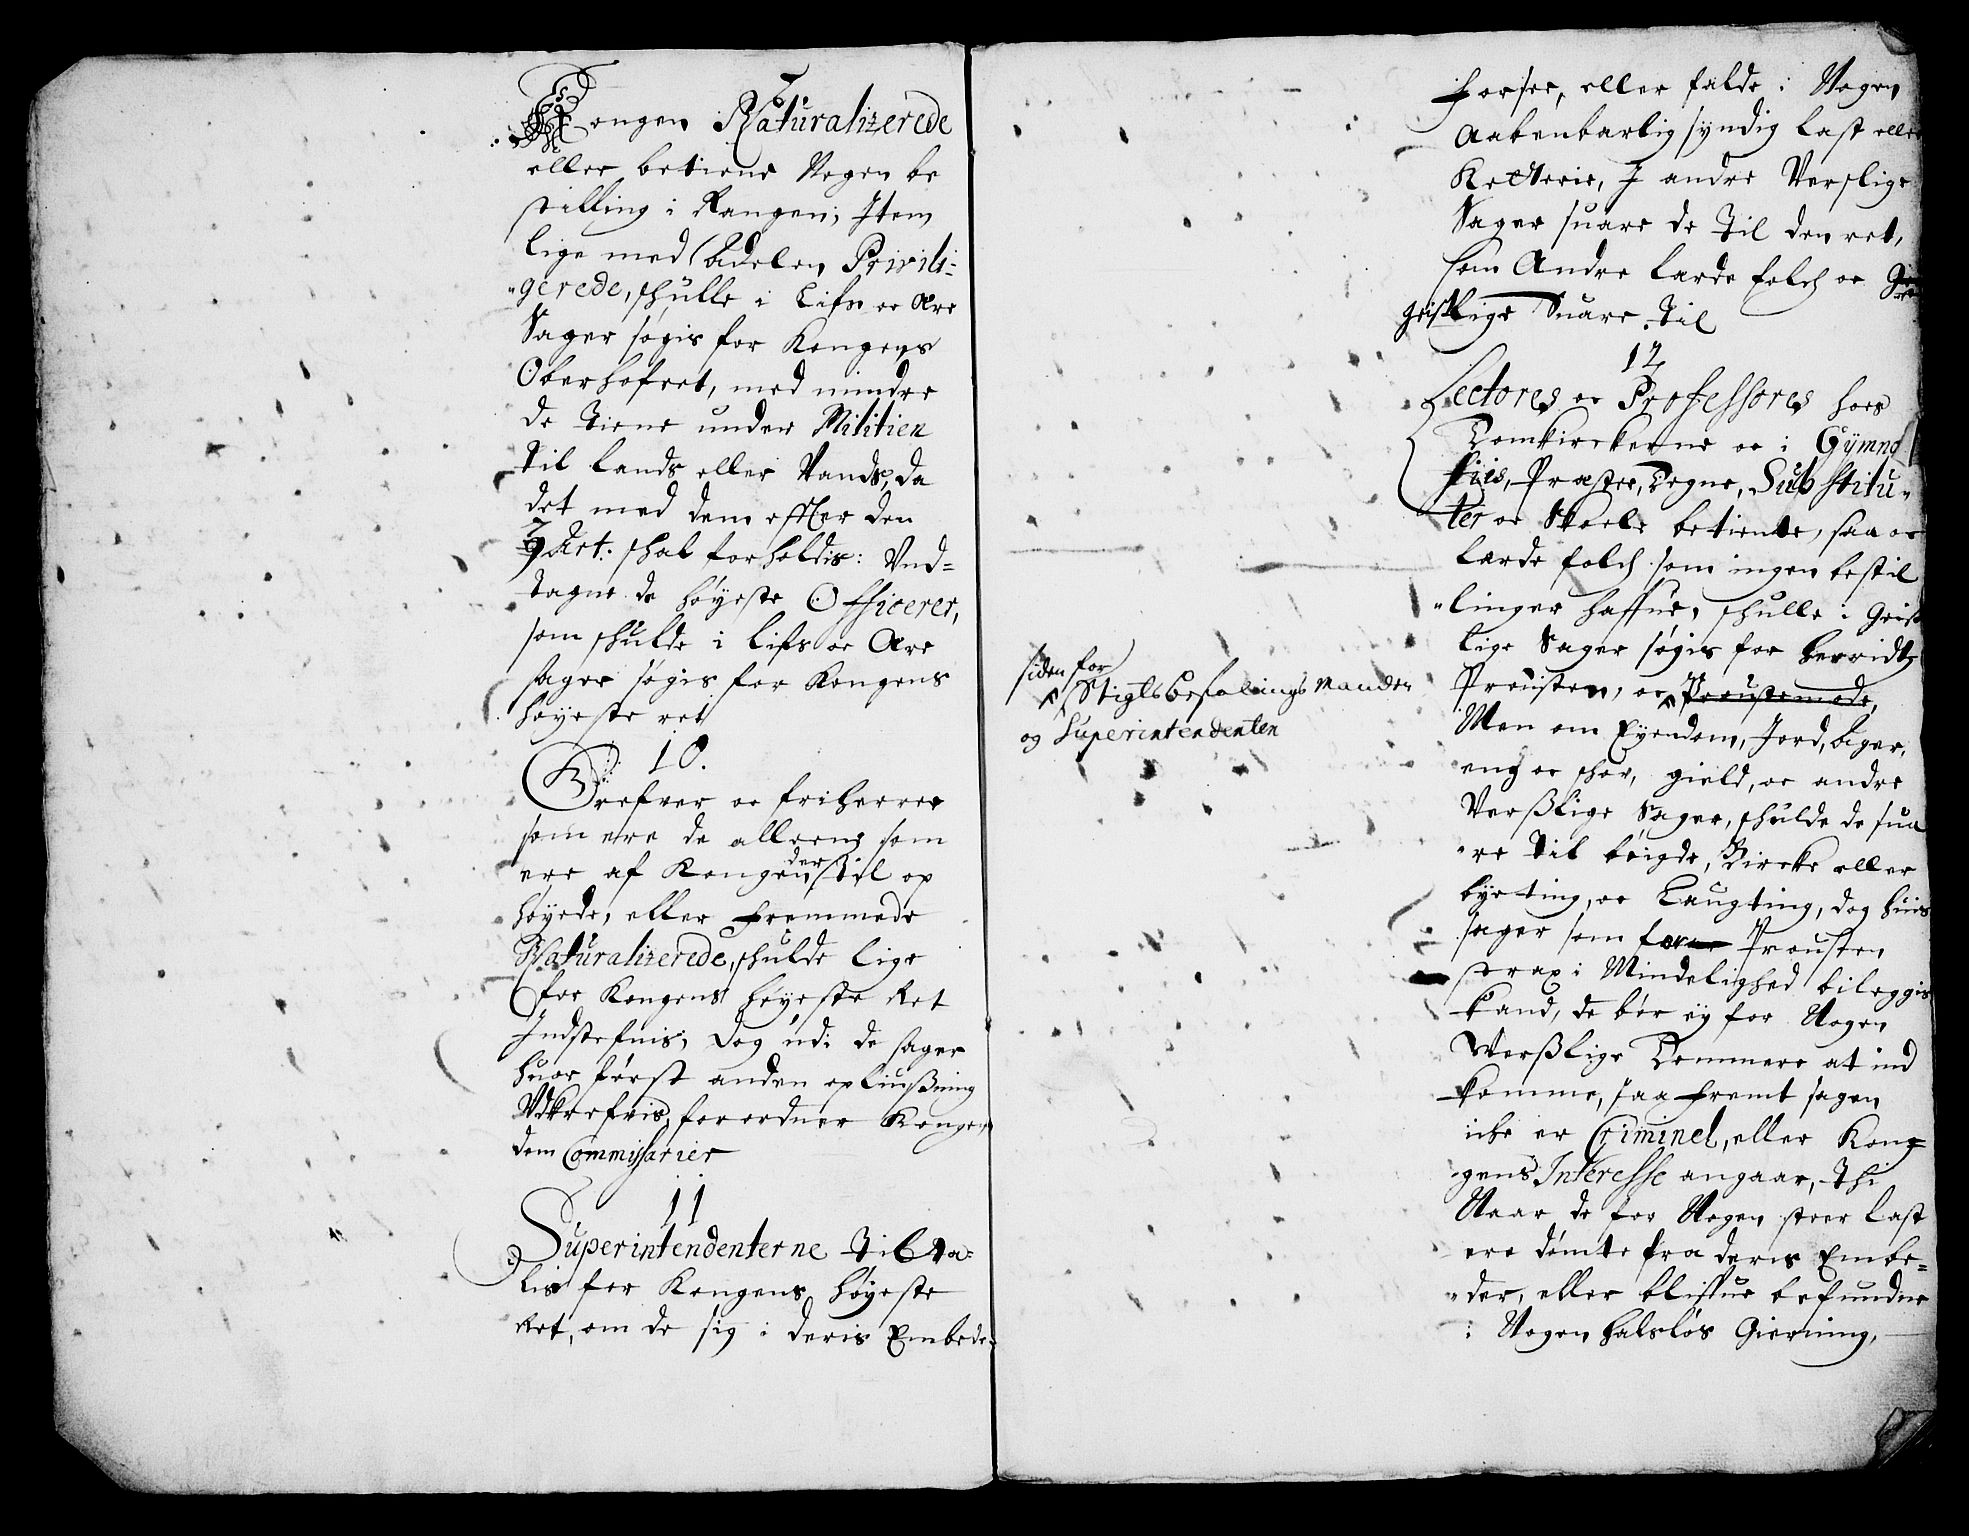 Kongen Naturalizerede
eller betiene Nogen be
stilling i Rangen, Item
lige med Adelen Privili-
gerede, skulle i Lifs oc Ære
Sager søgis for Kongens
Oberhofret, med mindre
de Tiene under Militien
til lands eller Vands, da
det med dem effter den
9 Art. skal forholdis: Vnd=
tagne de høyeste Officerer,
som skulde i lifs oc Ære
sager søgis for Kongens
høyeste ret
10.
Grefver oc friherrer
som ere de alleene som
ere af Kongen dertil op
høyede, eller fremmede
Naturalizerede, skulde lige
for Kongens høyeste Ret
Indstefnis, dog udi de sager
huor først anden opliusning
Vdkrefvis, forordner Kongen
dem Commissarier
11
Superintendenterne Tilta-
lis for Kongens høyeste
Ret, om de sig i deris Embede
forsee, eller falde i Nogen
Aabenbarlig syndig last eller
Ketterie, I andre Verslige
Sager suare de Til den ret,
som Andre lærde folch oc
geistlige Suare Til
12
Lectores oc Professores hoes
Domkirckerne oc i Gymna
siis, Præster, Degne, Substitu-
ter oc Skoele betiente, saa oc
lærde folch som ingen bestil
linger haffue, skulle i Geist
lige Sager søgis for herridtz
Prousten, oc Proustemode,
siden for
Stigtsbefalings Manden
og Superintendenten
Men om Eyendom, Jord, ager,
eng oc skov, gield, oc andre
Verßlige Sager, skulde de sua
re til bøigde, Bircke eller
byeting, oc Laugting, dog huis
sager som for Prousten
strax i Mindelighed bileggis
kand, de bør ey for Nogen
Werßlige Dommere at ind
komme, saa fremt sagen
iche er Criminel, eller Kon=
gens Interesse angaar, Thi
Naar de for Nogen stoer last
ere dømte fra deris Embe=
der, eller bliffue befundne
i Nogen halsløs Gierning,